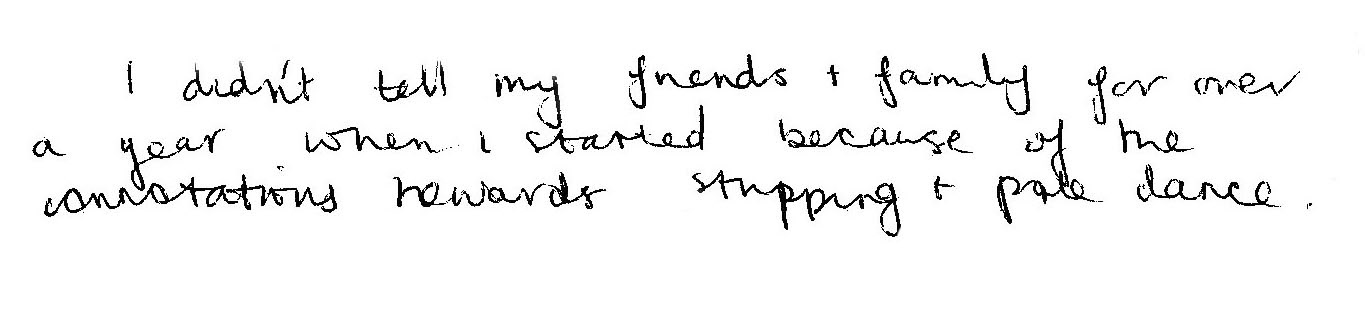 I didn't tell my friends + family for over
a year when i started because of the
connotations towards stripping + pole dance.